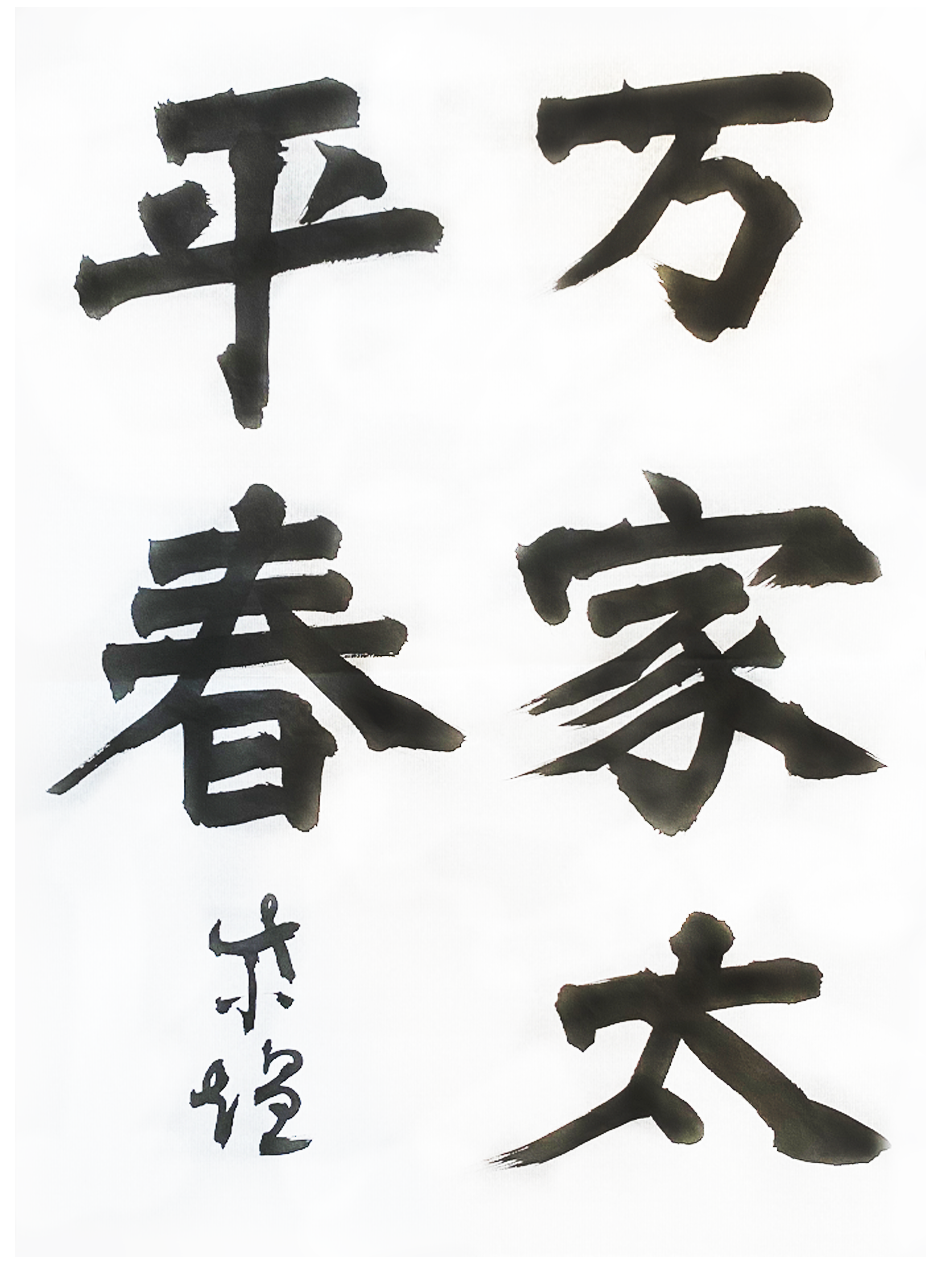 万家太
平春